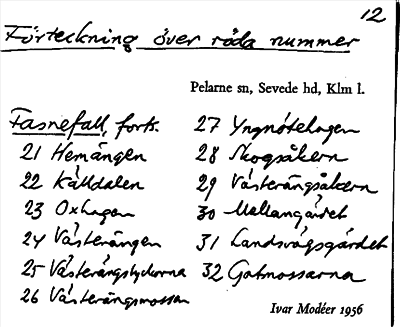 12
Förteckning över röda nummer
Pelarne sn, Sevede hd, Klm l.
Fasnefall, forts.
21 Hemängen
22 Källdalen
23 Oxhagen
24 Västerängen
25 Västerängslyckorna
26 Västerängsmossen
27 Yngnötehagen
28 Skogsåkern
29 Västerängsåkern
30 Mellangärdet
31 Landsvägsgärdet
32 Gatmossarna
Ivar Modéer 1956